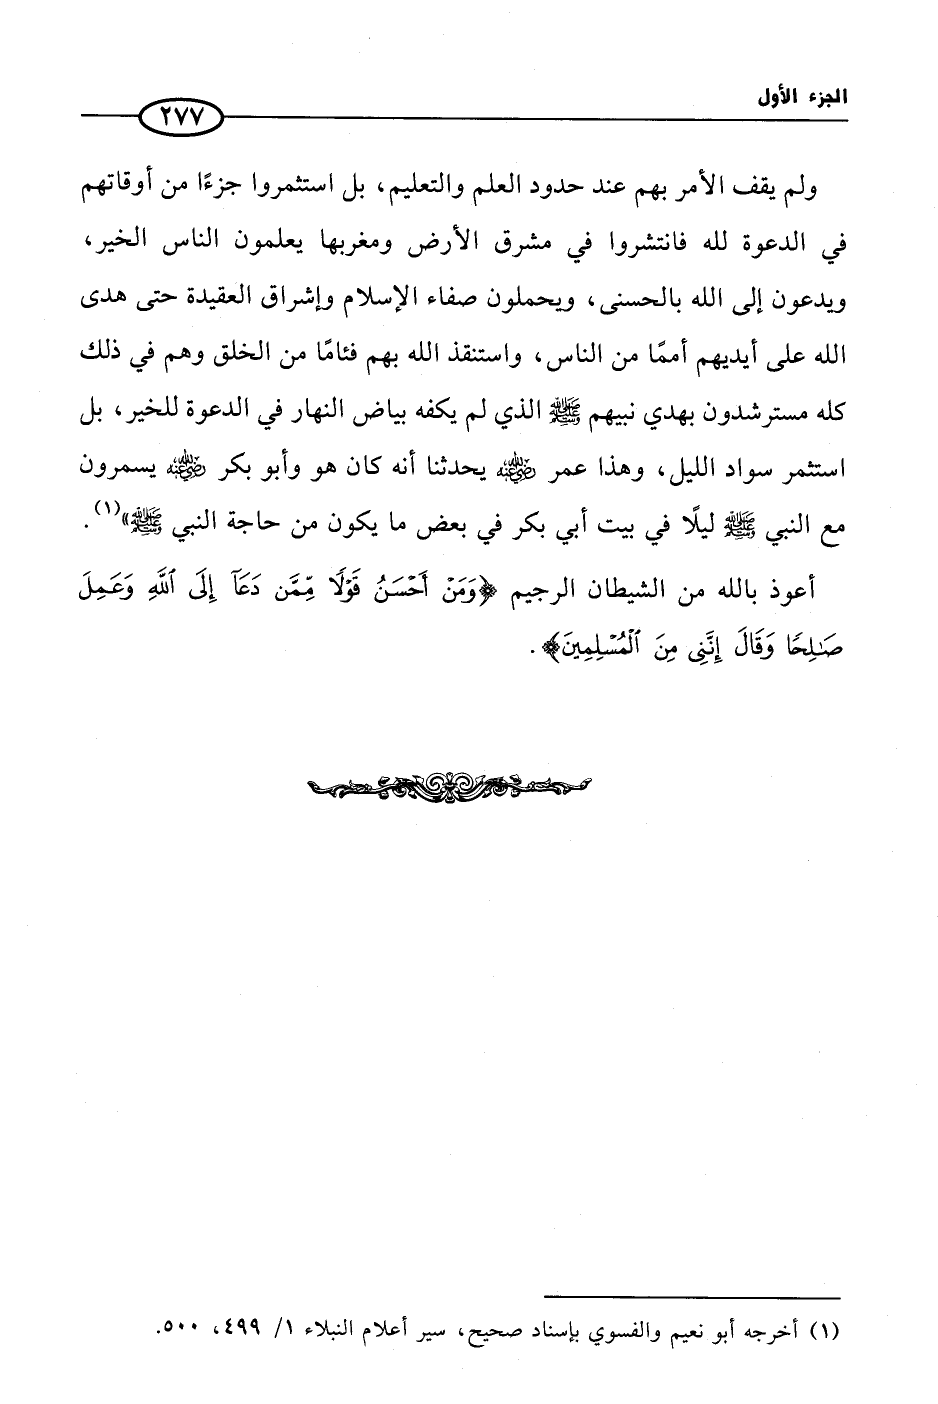 الجزء الأول
٢٧٧
ولم يقف الأمر بهم عند حدود العلم والتعليم، بل استثمروا جزءًا من أوقاتهم
في الدعوة لله فانتشروا في مشرق الأرض ومغربها يعلمون الناس الخير،
ويدعون إلى الله بالحسنى، ويحملون صفاء الإسلام وإشراق العقيدة حتى هدى
الله على أيديهم أممًا من الناس، واستنقذ الله بهم فئامًا من الخلق وهم في ذلك
كله مسترشدون بهدي نبيهم ﷺ الذي لم يكفه بياض النهار في الدعوة للخير، بل
استثمر سواد الليل، وهذا عمر رضي الله عنه يحدثنا أنه كان هو وأبو بكر رضي الله عنه يسمرون
مع النبي ﷺ ليلًا في بيت أبي بكر في بعض ما يكون من حاجة النبي ﷺ»(١).
أعوذ بالله من الشيطان الرجيم ﴿وَمَنْ أَحْسَنُ قَوْلًا مِّمَّن دَعَآ إِلَى ٱللَّهِ وَعَمِلَ
صَٰلِحًا وَقَالَ إِنَّنِى مِنَ ٱلْمُسْلِمِينَ﴾.
(١) أخرجه أبو نعيم والفسوي بإسناد صحيح، سير أعلام النبلاء ١/ ٤٩٩، ٥٠٠.